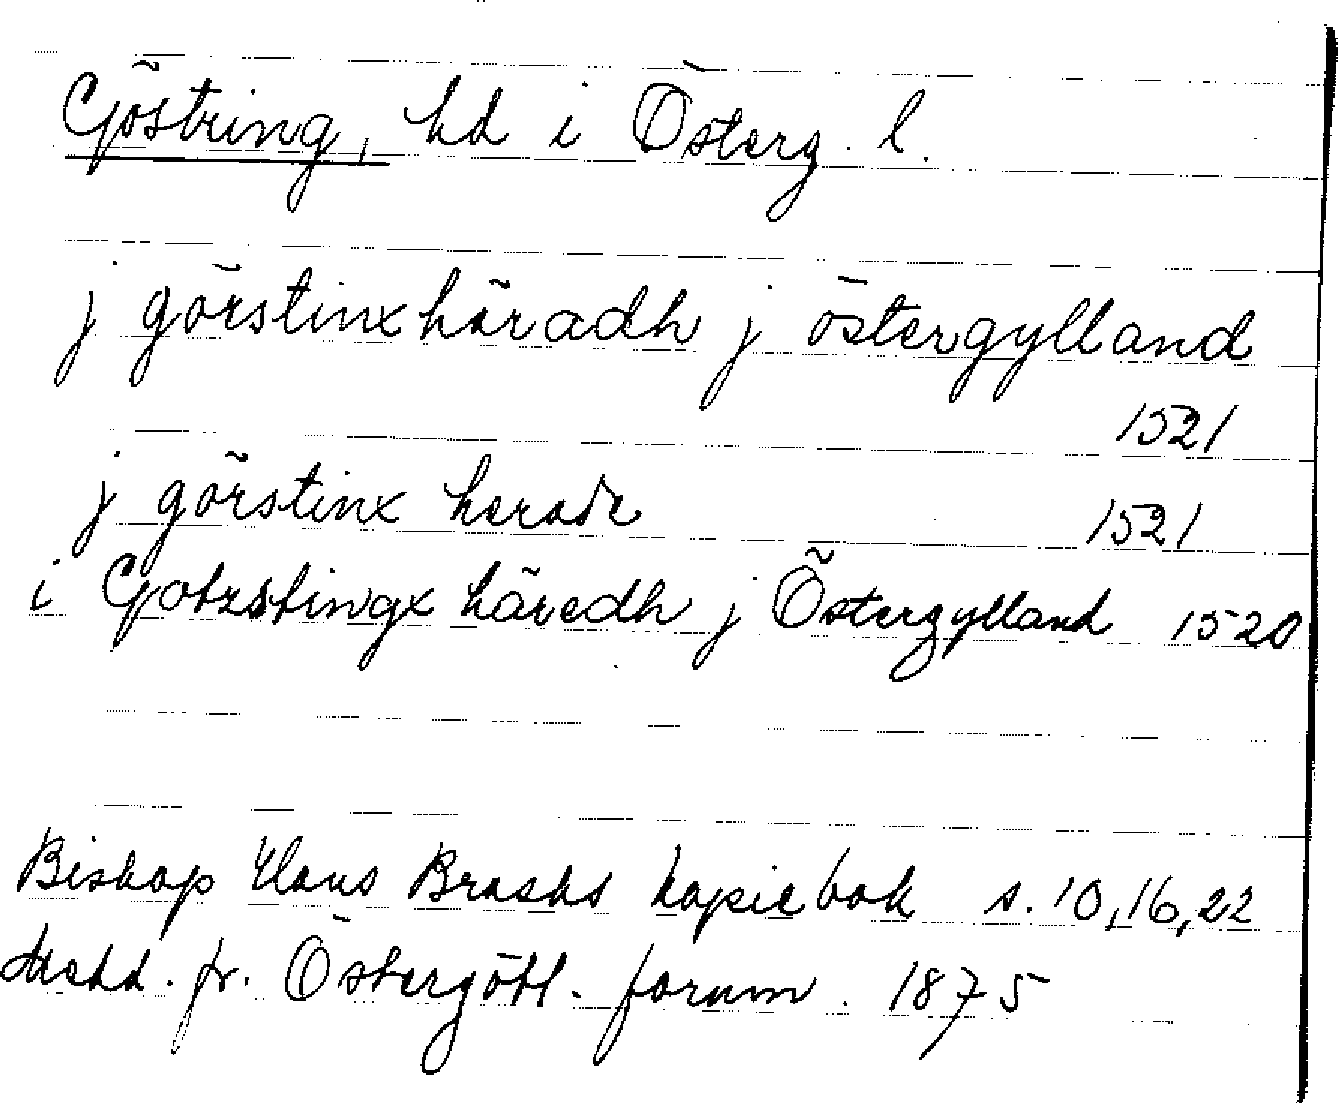 Göstring, hd i Österg. l.
j görstinxhäradh j östergylland
1521
j görstinx herade 1521
i Gotzstingx häredh j Östergylland 1520
Biskop Hans Brasks kopiebok s. 10, 16, 22
Medd. fr. Östergötl. fornm. 1875